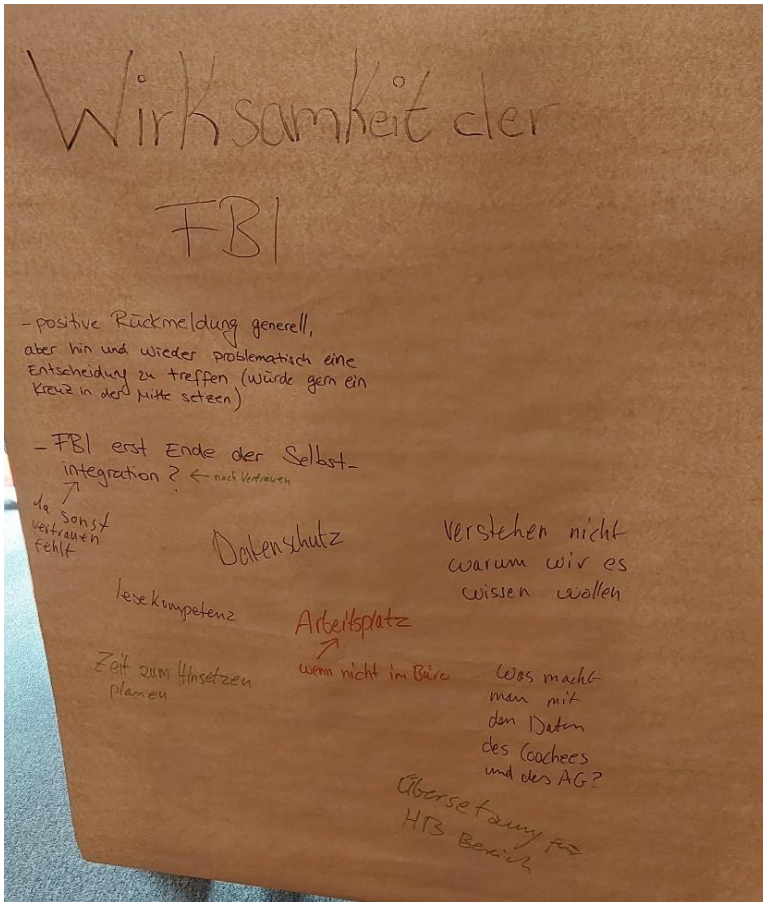 Wirksamkeit der
FBI
- positive Rückmeldung generell,
aber hin und wieder problematisch eine
Entscheidung zu treffen (würde gern ein
Kreuz in der Mitte setzen)
- FBI erst Ende der Selbst-
integration? ← noch Vertrauen
da sonst
vertrauen
fehlt
Datenschutz
Verstehen nicht
warum wir es
wissen wollen
Lesekompetenz
Arbeitsplatz
wenn nicht im Büro
Zeit zum Hinsetzen
planen
Was macht
man mit
den Daten
des Coachees
und des AG?
Übersetzung für
HB Bereich